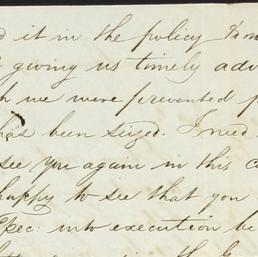 it in the policy
giving us timely adv
we were prevented
has been seized. I need
see you again in this c
happy to see that you
Spec: into execution be